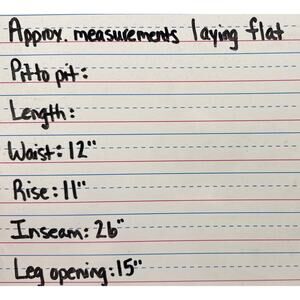 Approx. measurements laying flat
Pit to pit:
Length:
Waist: 12"
Rise: 11"
Inseam: 26"
Leg opening: 15"